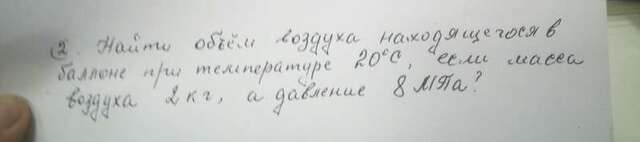 2. Найти объём воздуха находящегося в
баллоне при температуре 20°С, если масса
воздуха 2 кг, а давление 8 МПа?